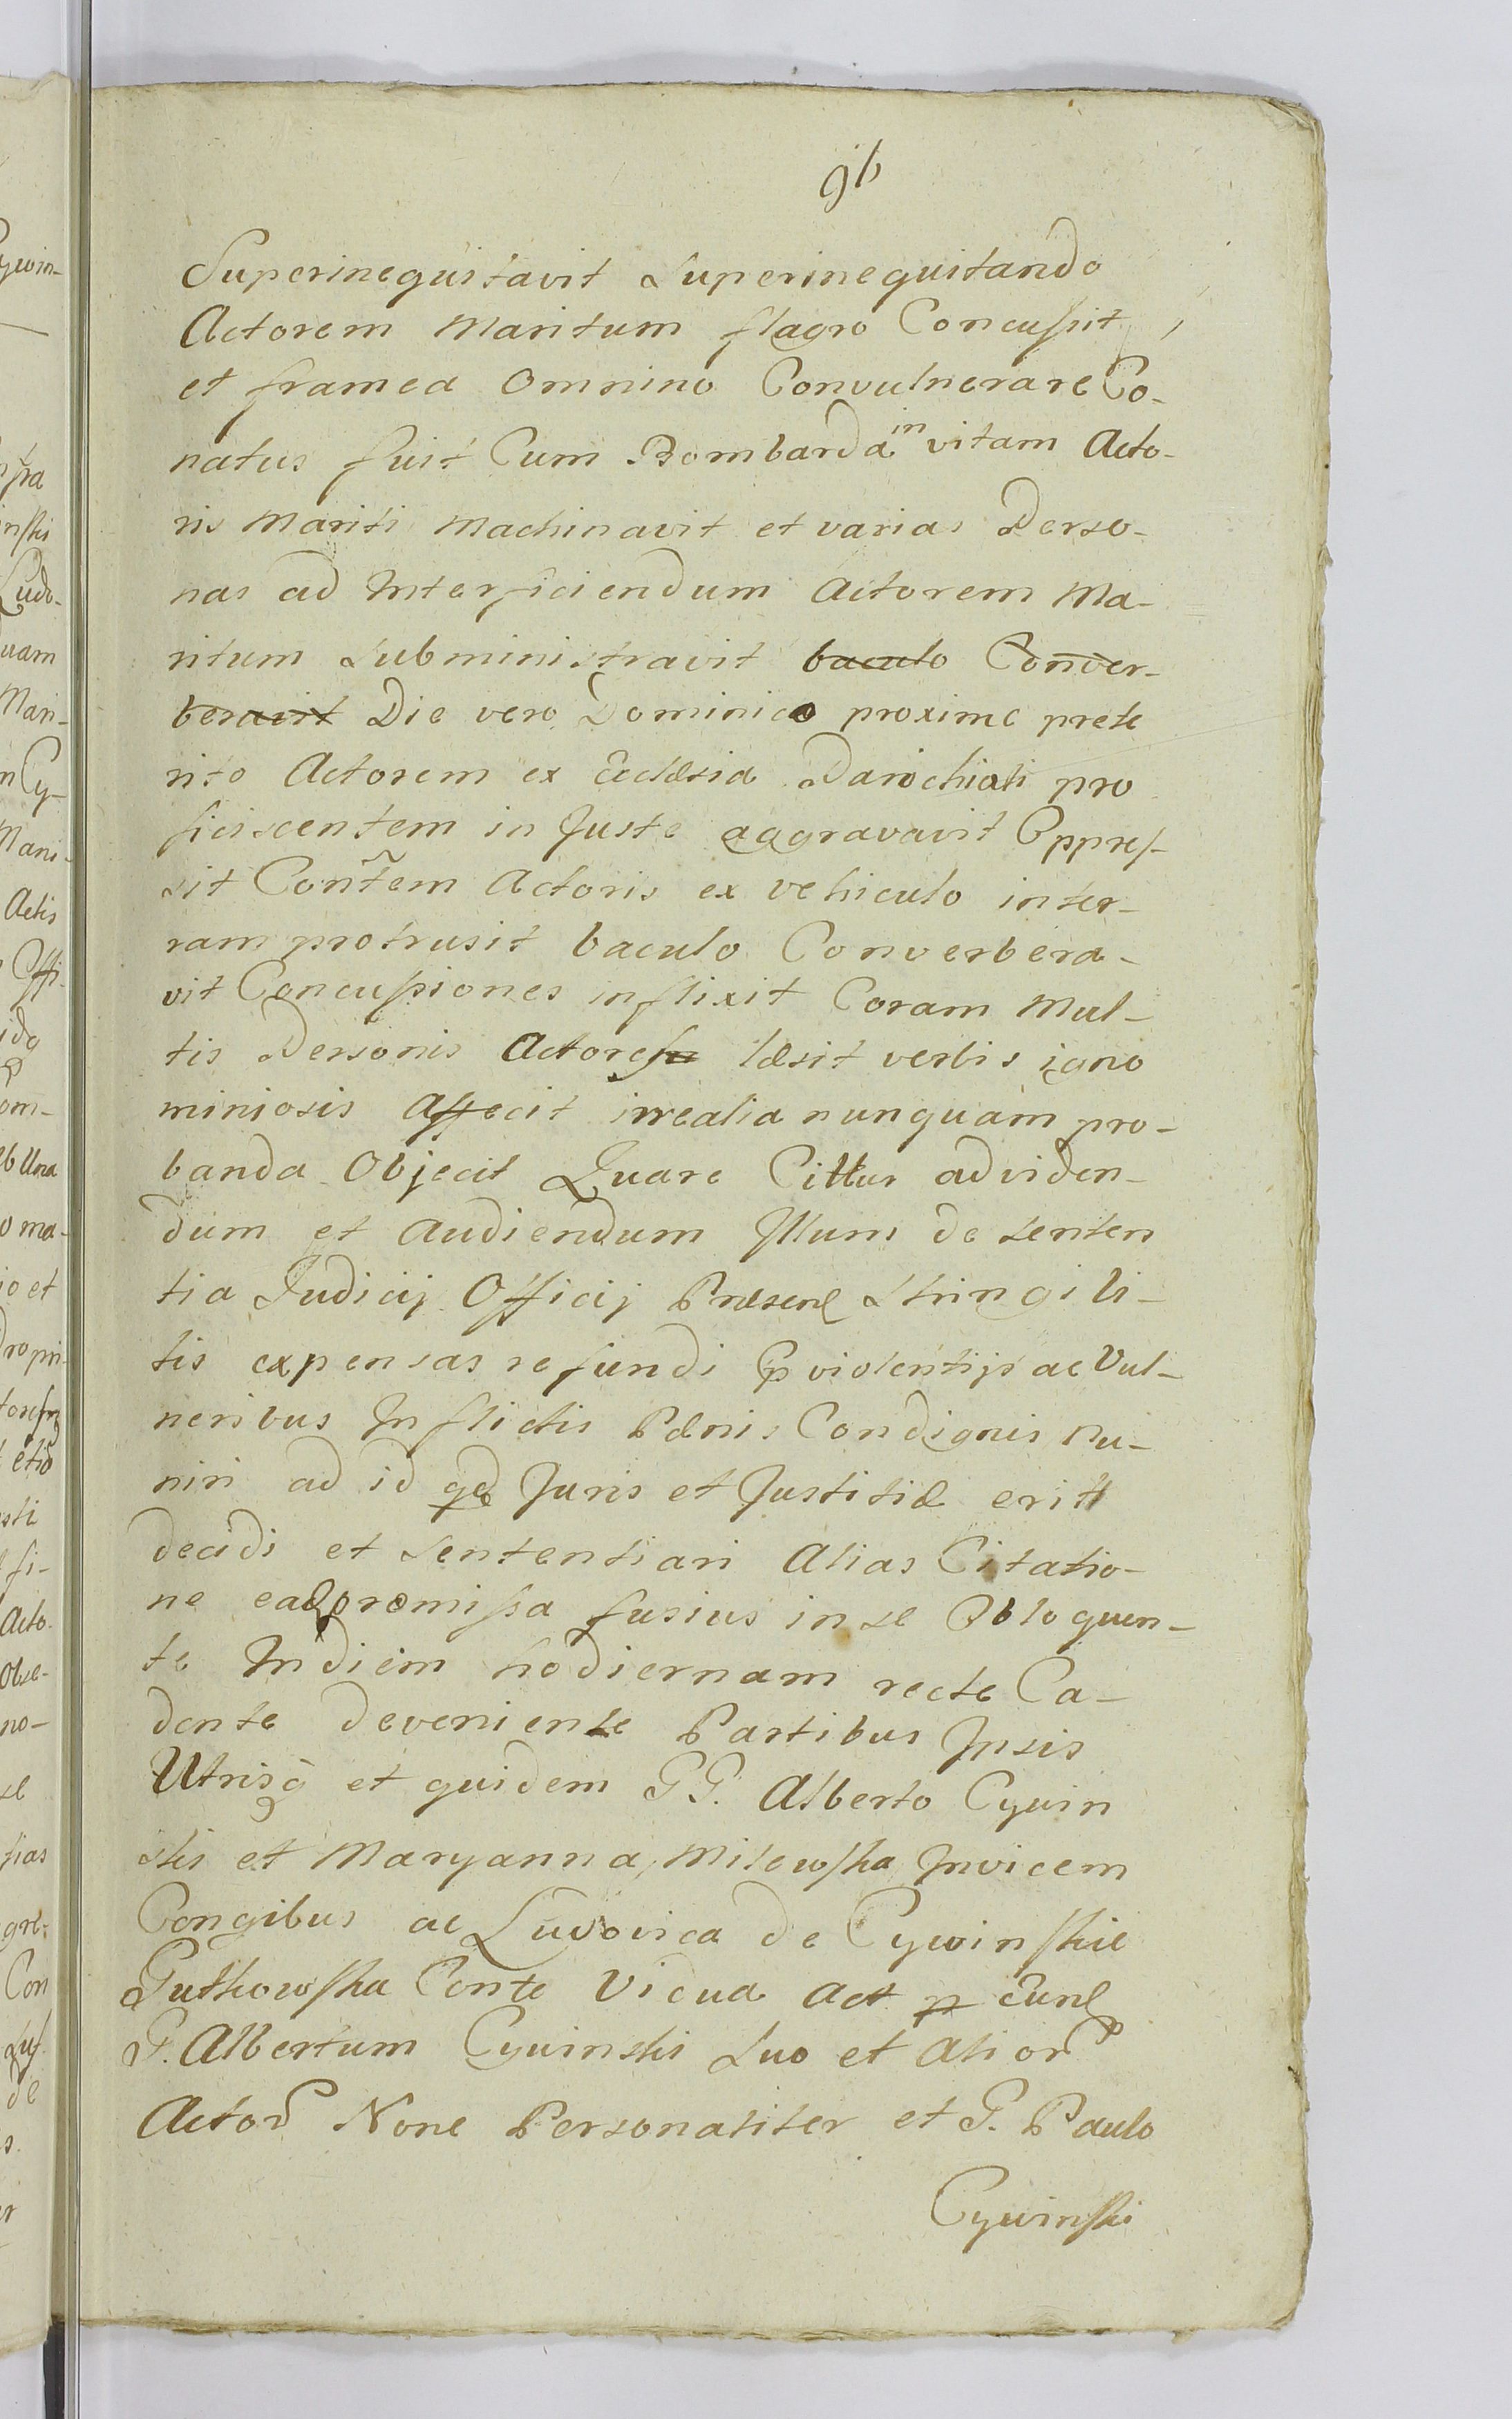 9b
Superinequitavit Superinequitando
Actorem Maritum flagro Concussit,
et framea omnino Convulnerare Co-
natus fuit Cum Bombarda in vitam Acto-
ris Mariti Machinavit et varias Perso-
nas ad Interficiendum Actorem Ma-
ritum Subministravit baculo Conver-
beravit Die vero Dominico proxime prete
rito Actorem ex Ecclæsia Parochiali pro
ficiscentem in Juste aggravavit Oppres-
sit Contem Actoris ex vehiculo inter-
ram protrusit baculo Converbera-
vit Concussiones inflixit Coram Mul-
tis Personis Actores læsit verbis igno
miniosis Affecit irrealia nunquam pro-
banda Objecit Quare Cittur ad viden-
dum et audiendum Illum de senten
tia Judicij Officij Præsen Stringi li-
tis expensas refundi p violentijs ac Vul-
neribus Inflictis Pænis Condignis Pu-
niri ad id qd Juris et Justitiæ eritt
decidi et Sententiari Alias Citatio-
ne ead præmissa fusius in se Obloquen-
te In diem hodiernam recte Ca-
dente deveniente Partibus Ipsis
Utrisq et quidem GG. Alberto Cywin
ski et Maryanna Milewska Invicem
Congibus ac Ludovica de Cywinskie
Gutkowska Conte Vidua Act p eun
G. Albertum Cywinski Suo et Alior
Actor None Personaliter et G. Paulo
Cywinski
ywin-
Ludo-
uam
Mari-
n Cy-
Mari-
Actis
Offi-
om-
o ma-
io et
Acto-
Obse-
no-
Con
de